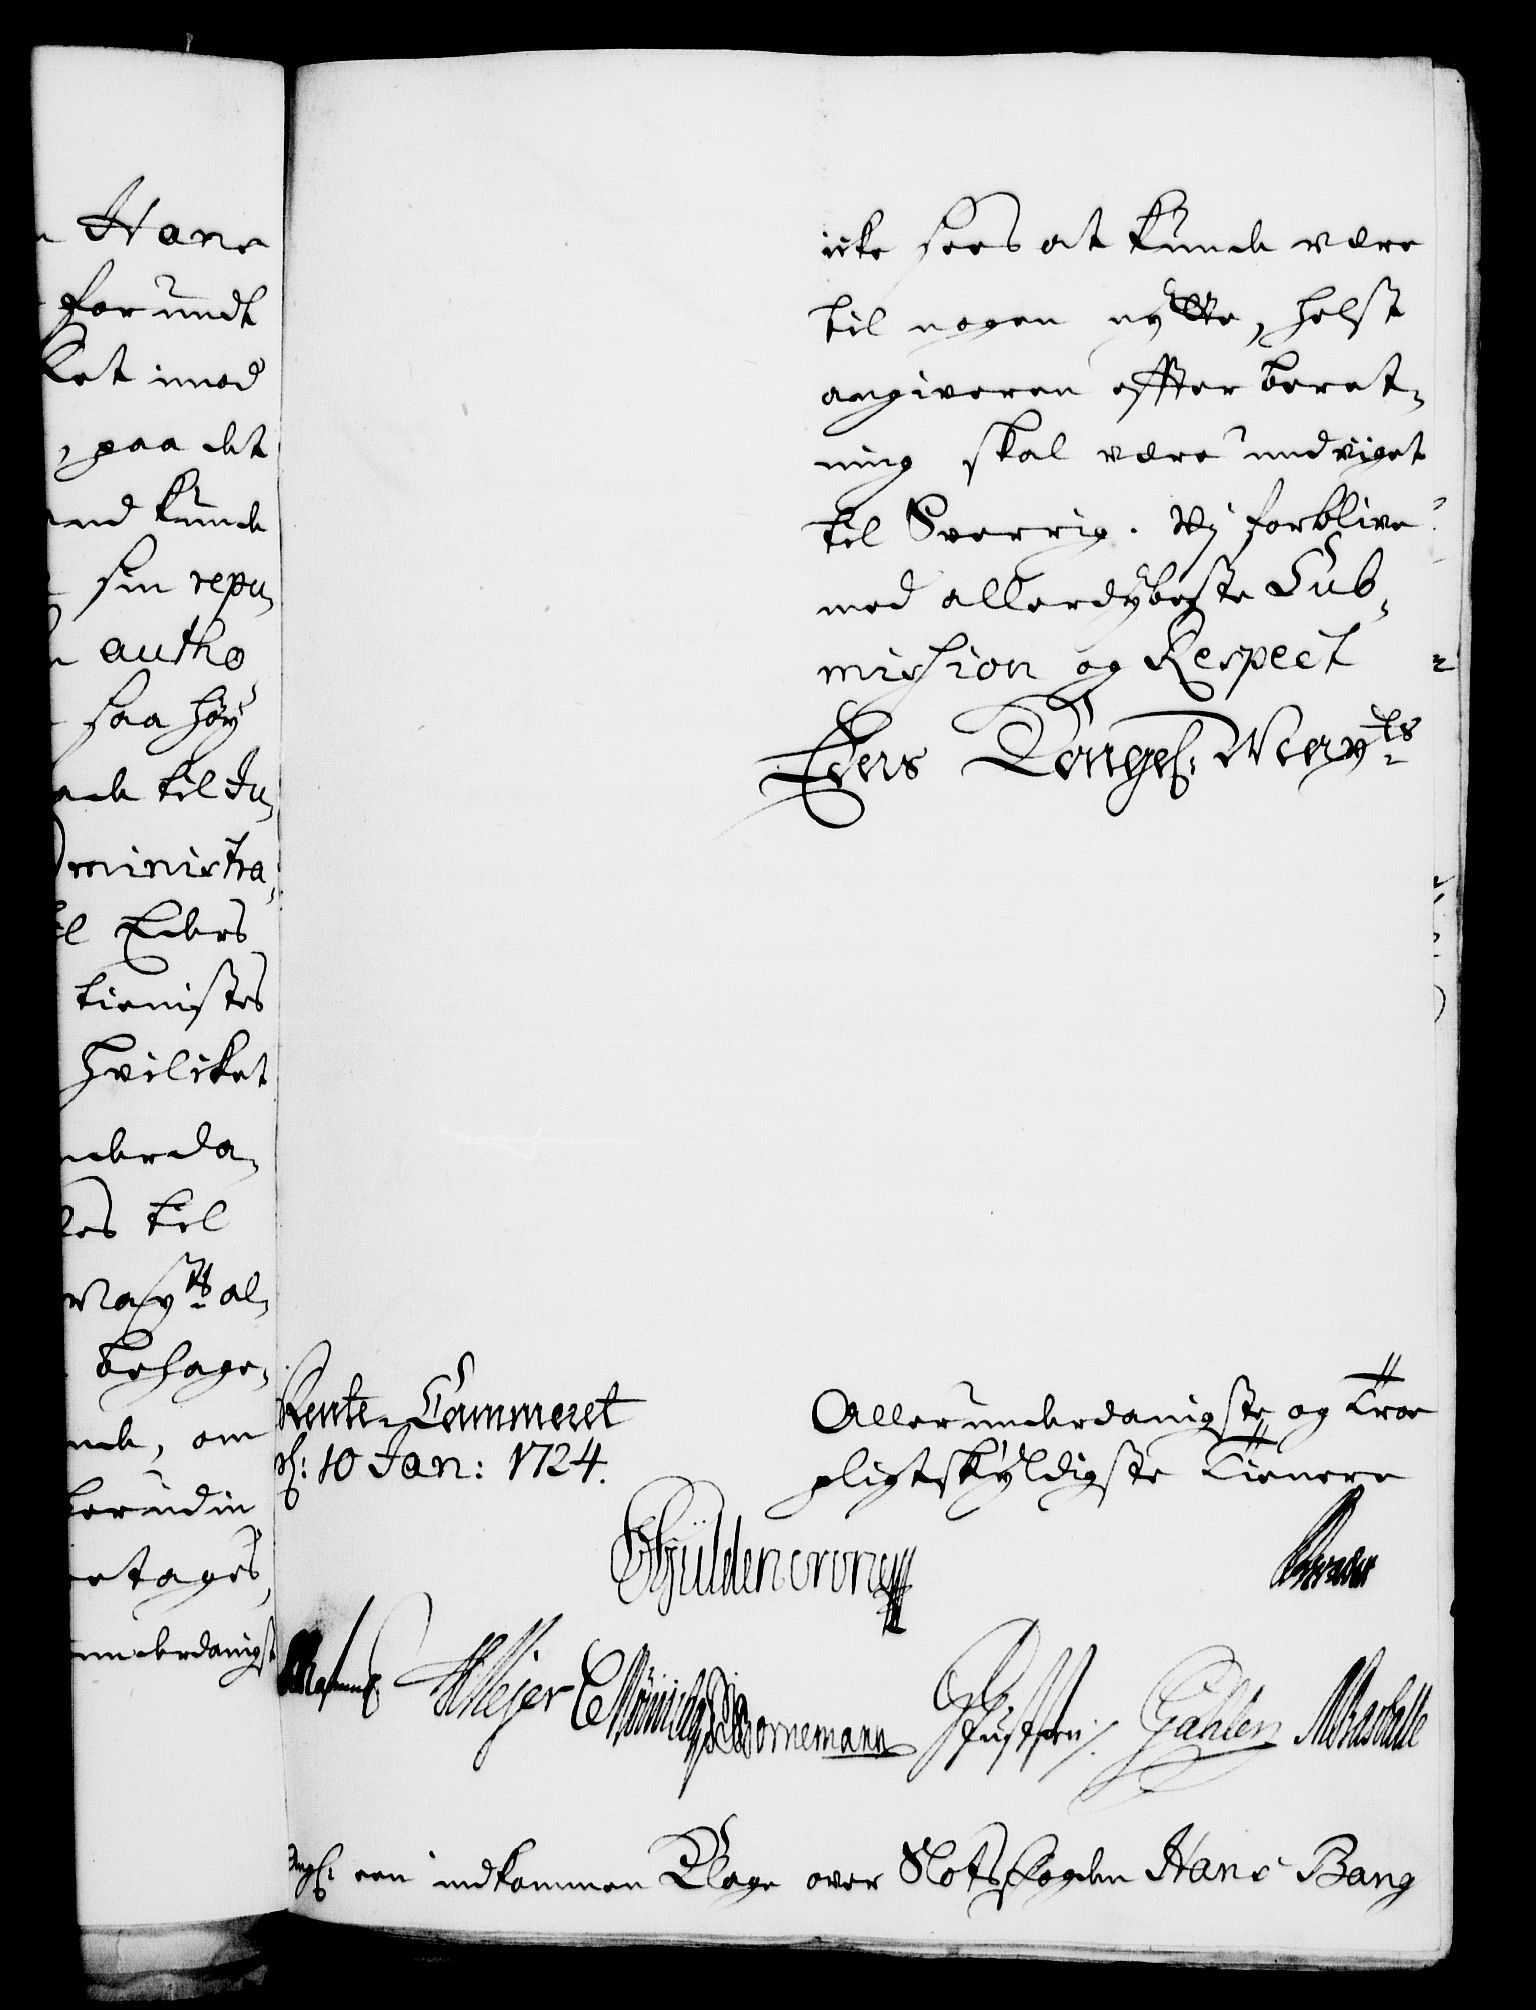 Hans
forundt
ket imod
, paa det
and kunde
sin repu,
autho,
saa höy
ade til Ju,
dministra,
til Eders
tienistes
hvilket
nderda,
les til
Maÿts al,
behage,
nde, om
herudin,
etages,
underdanigst
icke sees at kunde være
til nogen nytte, helst
angiveren effter beret,
ning skal være undviget
til Sverrig. Vj forblive
med allerdybeste Sub,
mission og Respect
Eders Kongel: Mayts
Rente-Cammeret
d: 10 Jan: 1724.
Allerunderdanigste og Troe
pligtskÿldigste Tienere
Güldencrone
HMejer
Bornemann
Gahlen
angl: een indkommen Klage over Slotsfogden Hans Bang